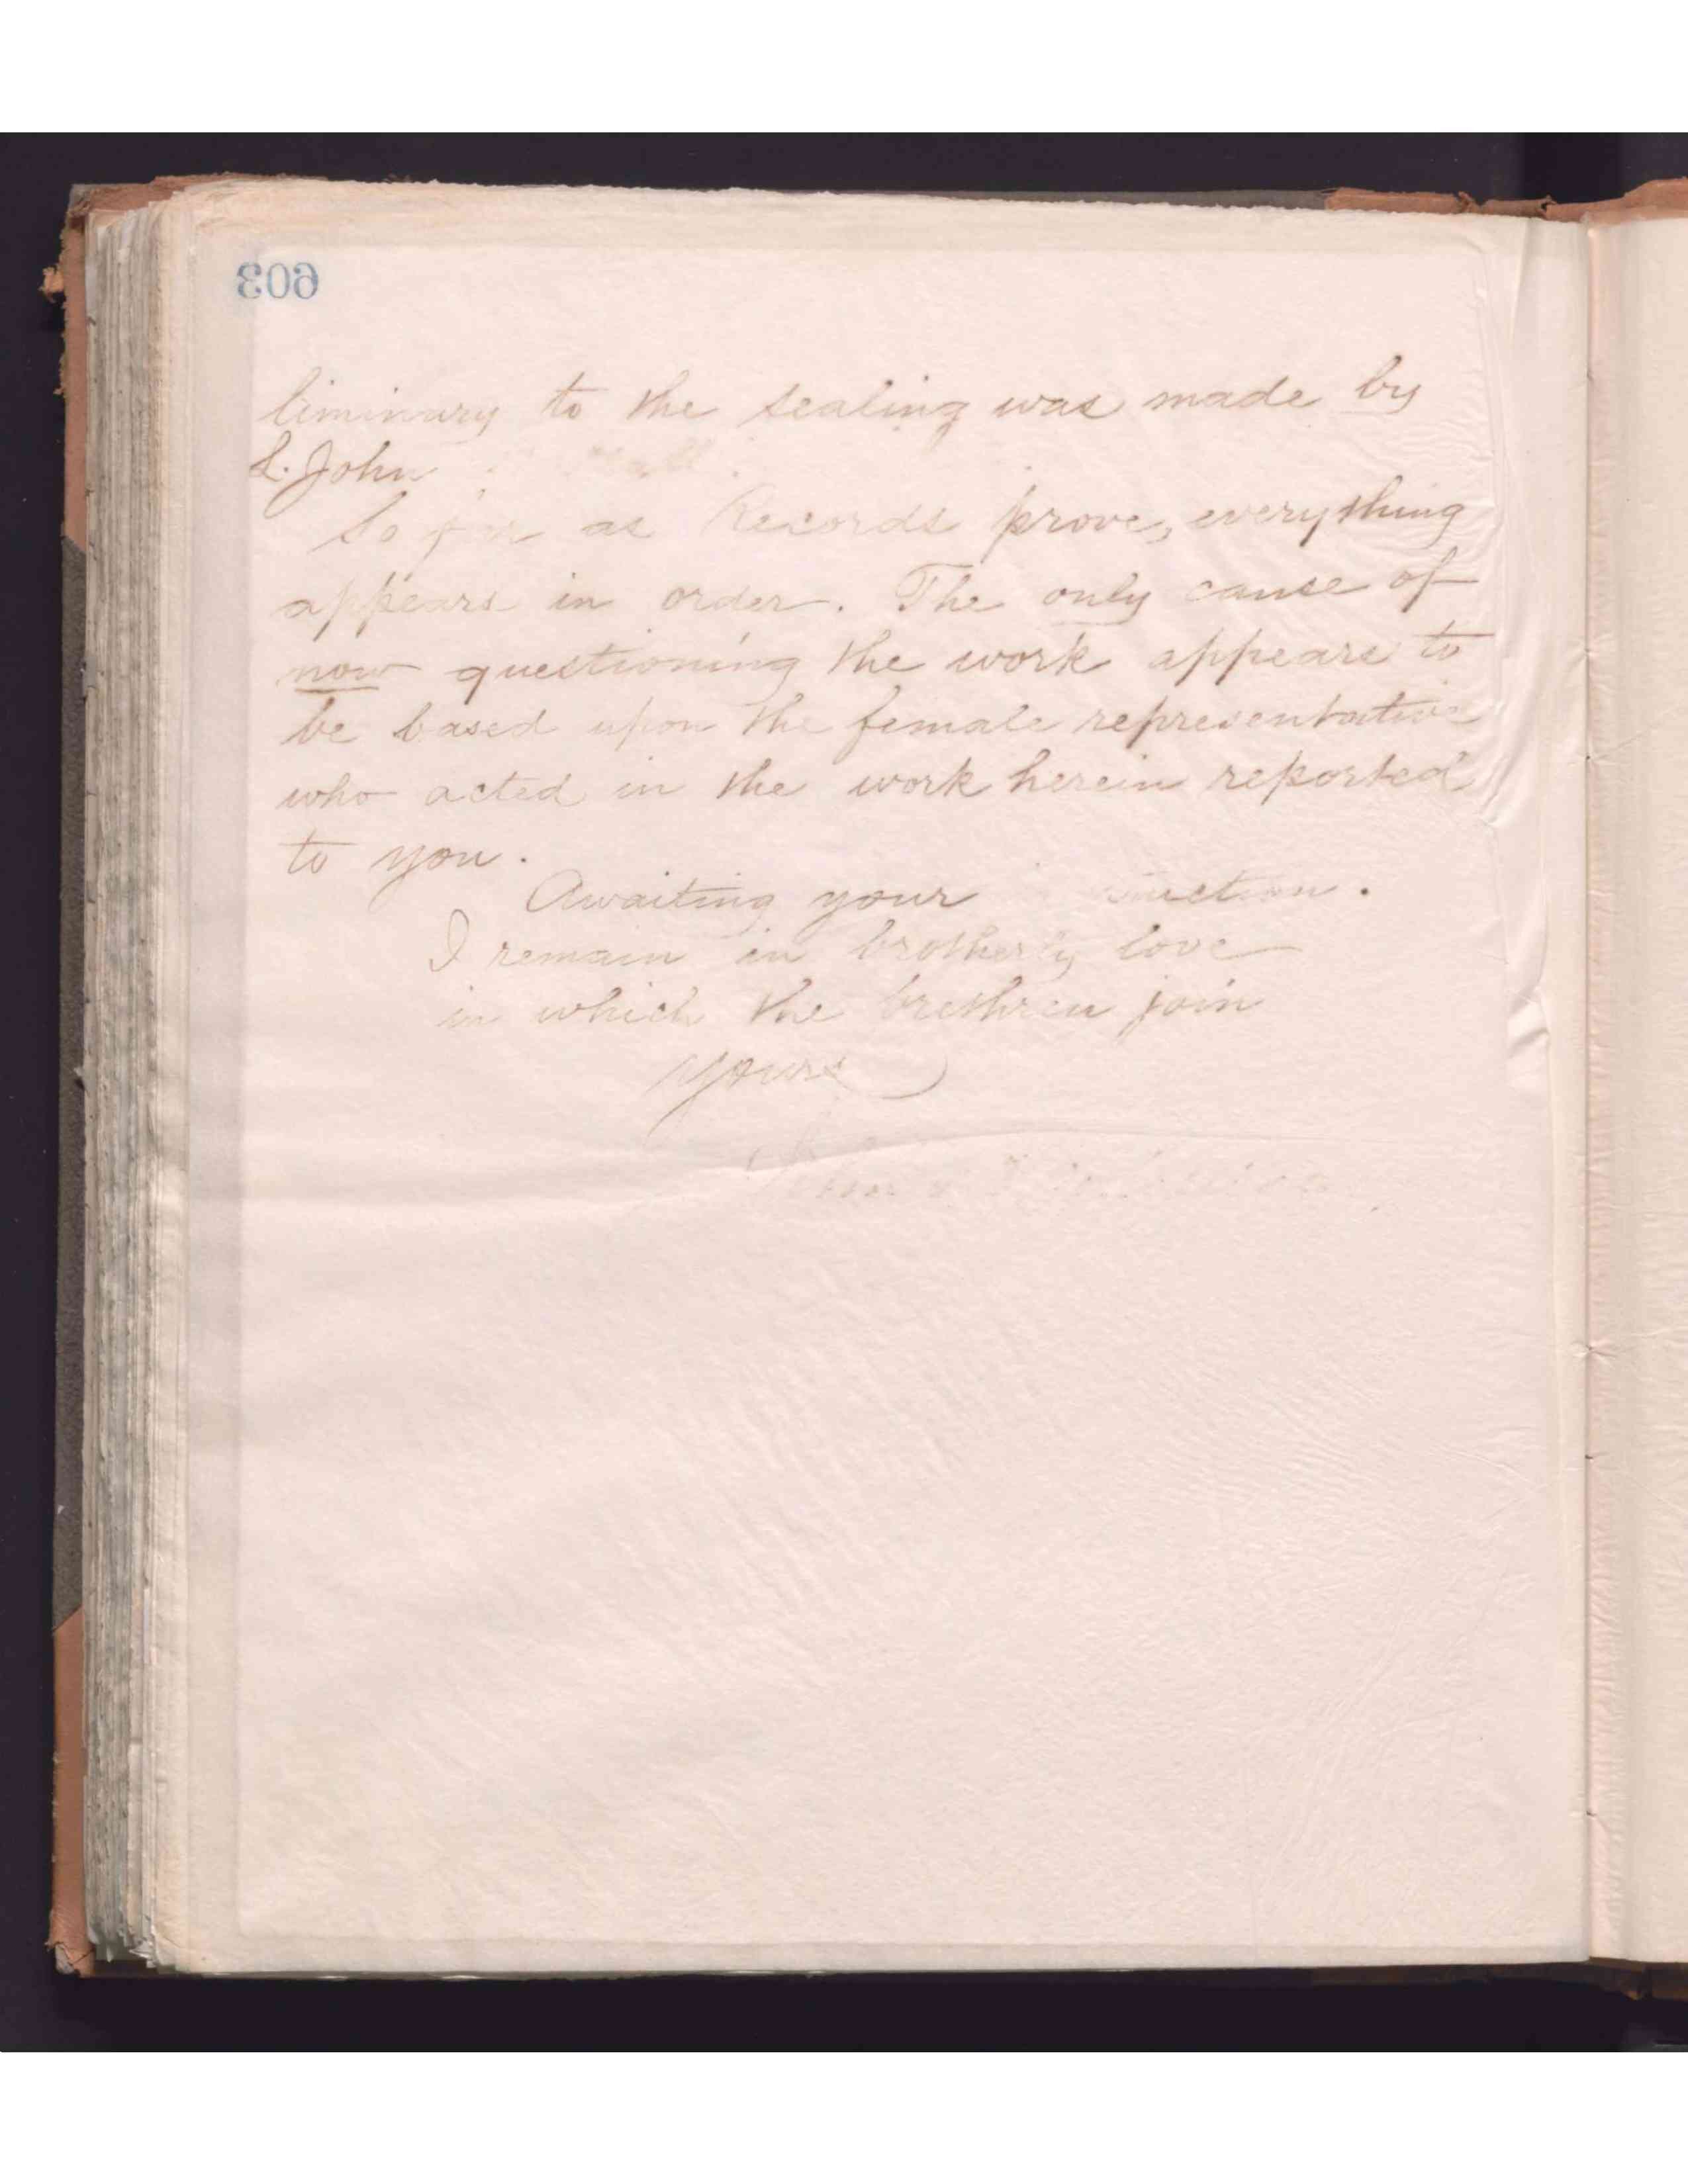 603
liminary to the sealing was made by
L. John
So far as Records prove, everything
appears in order. The only cause of
now questioning the work appears to
be based upon the female representative
who acted in the work herein reported
to you.
Awaiting your
I remain in brotherly love
in which the brethren join
Yours